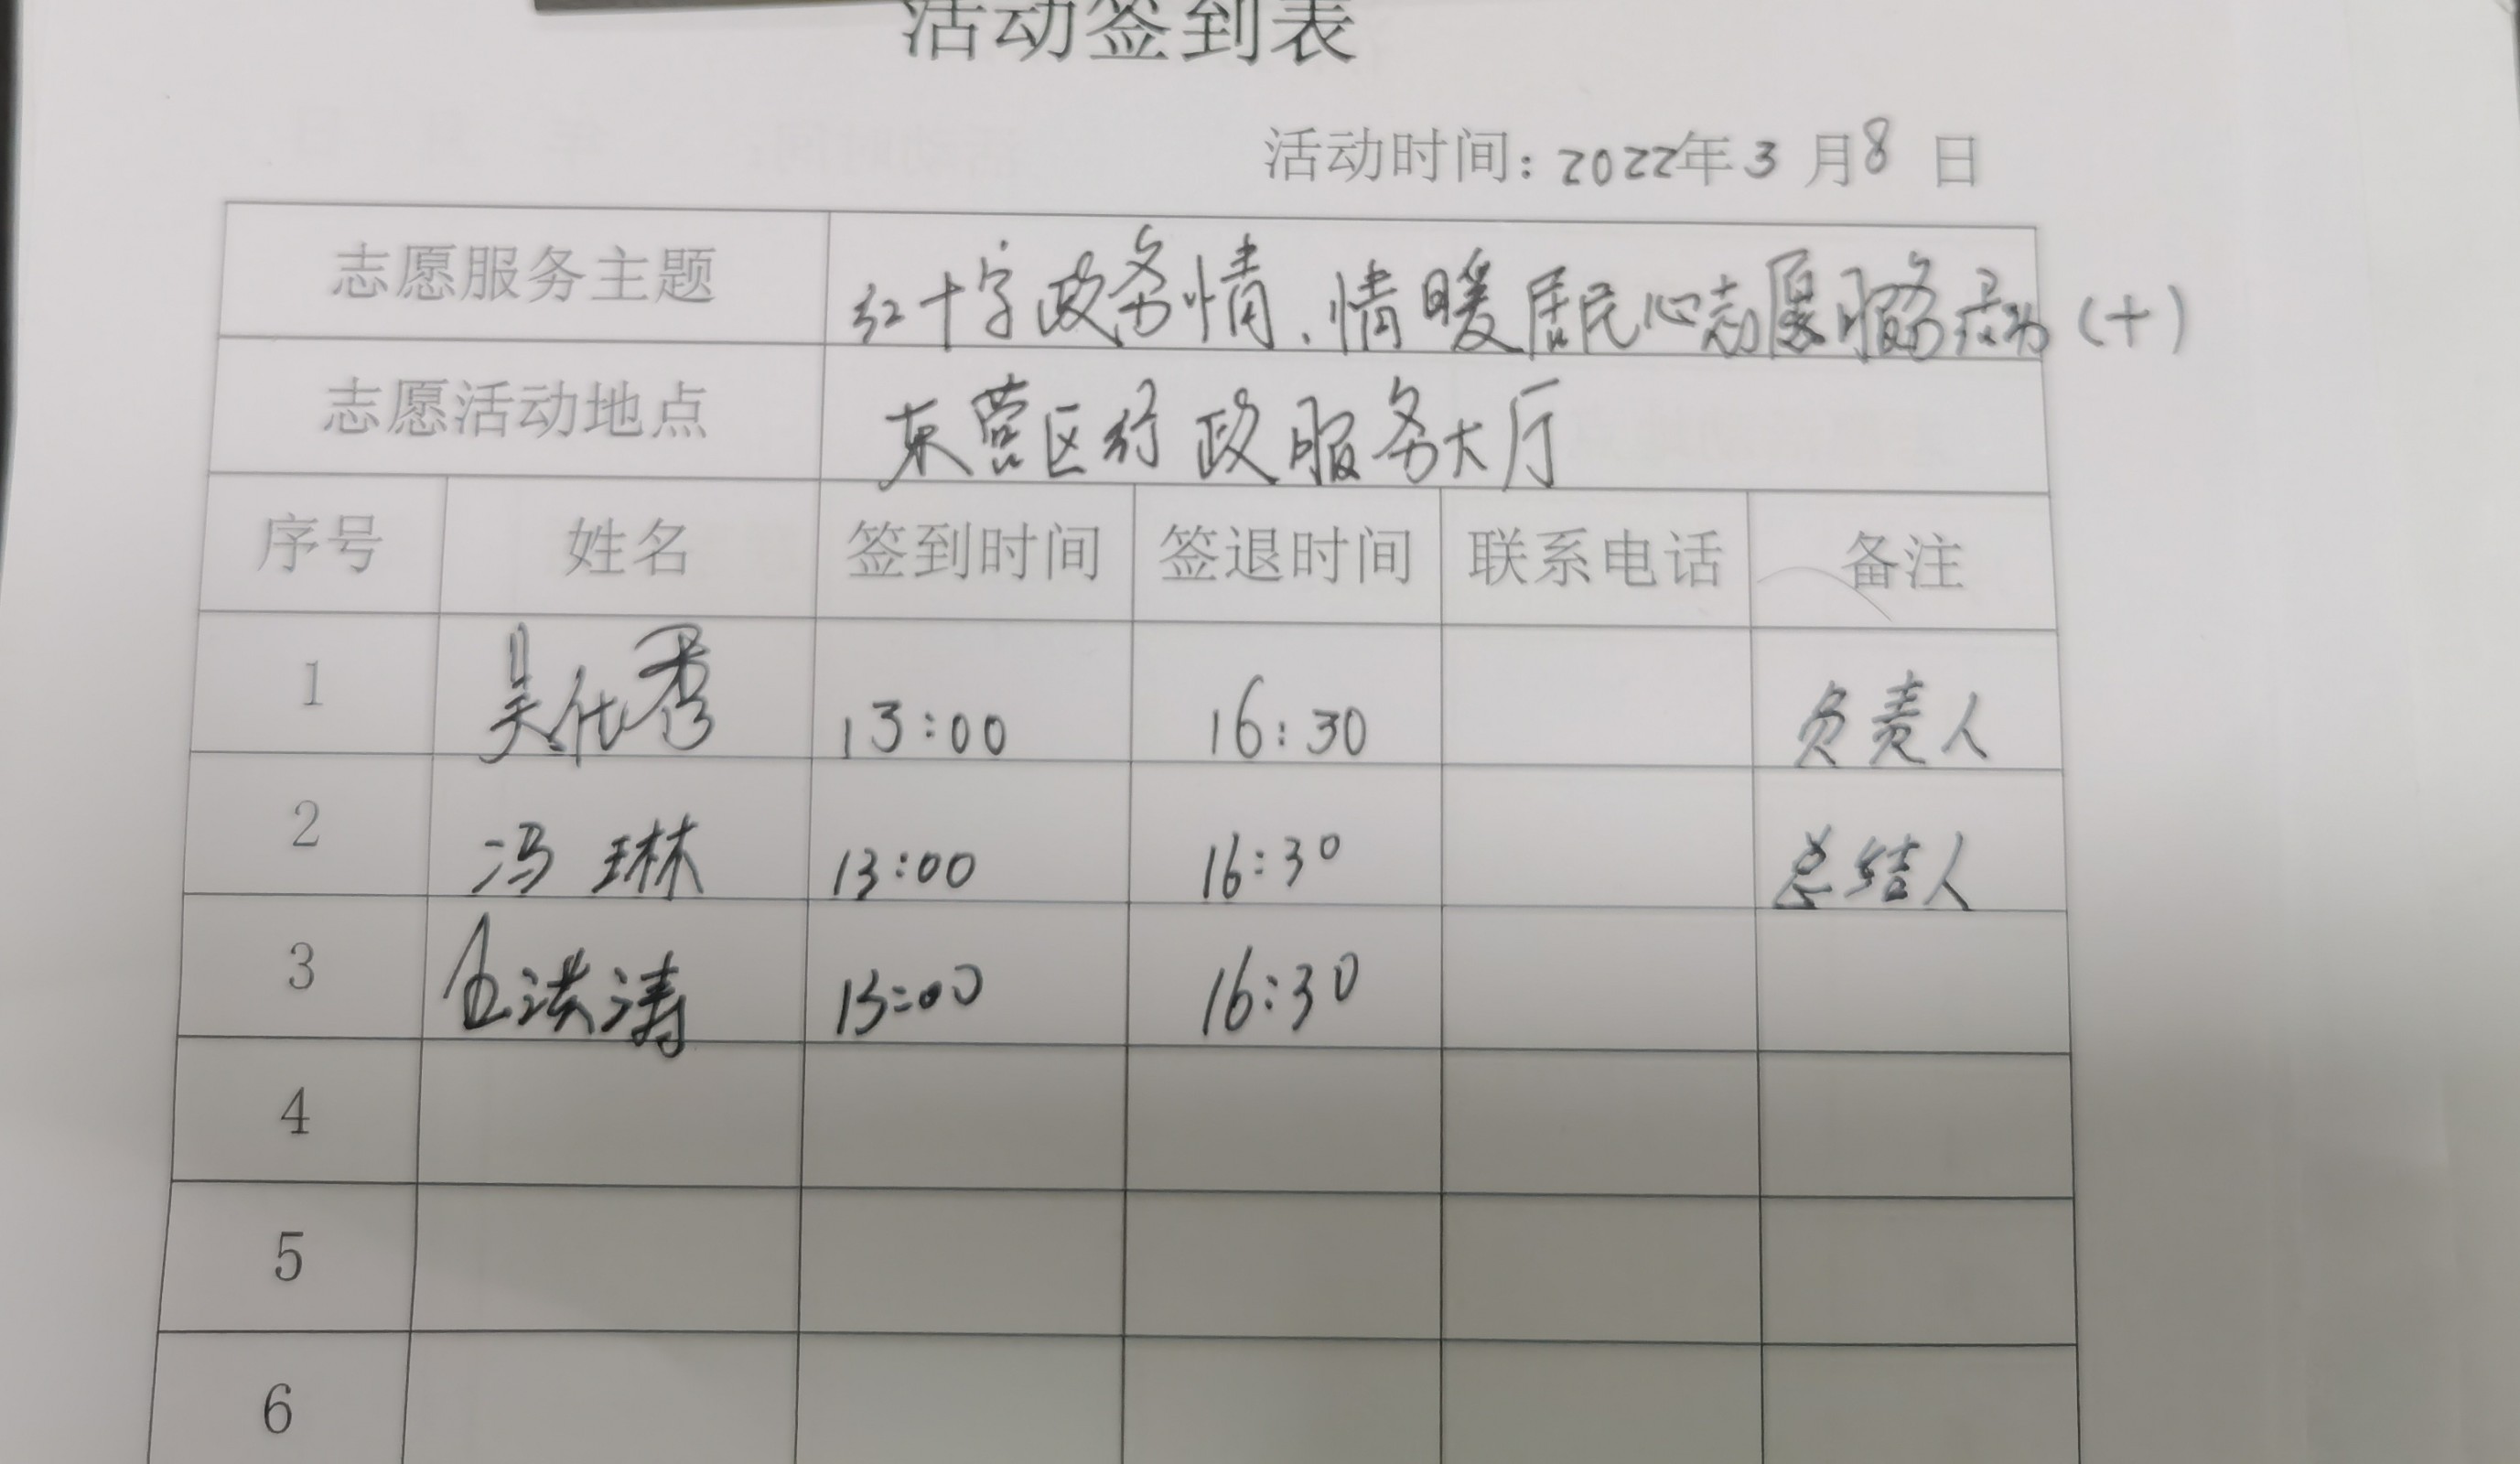 活动签到表
活动时间：2022年3月8日
志愿服务主题 红十字政务情、情暖居民心志愿服务活动（十）
志愿活动地点 东营区行政服务大厅
序号 姓名 签到时间 签退时间 联系电话 备注
1 吴代秀 13:00 16:30 负责人
2 冯琳 13:00 16:30 总结人
3 洪涛 13:00 16:30
4
5
6